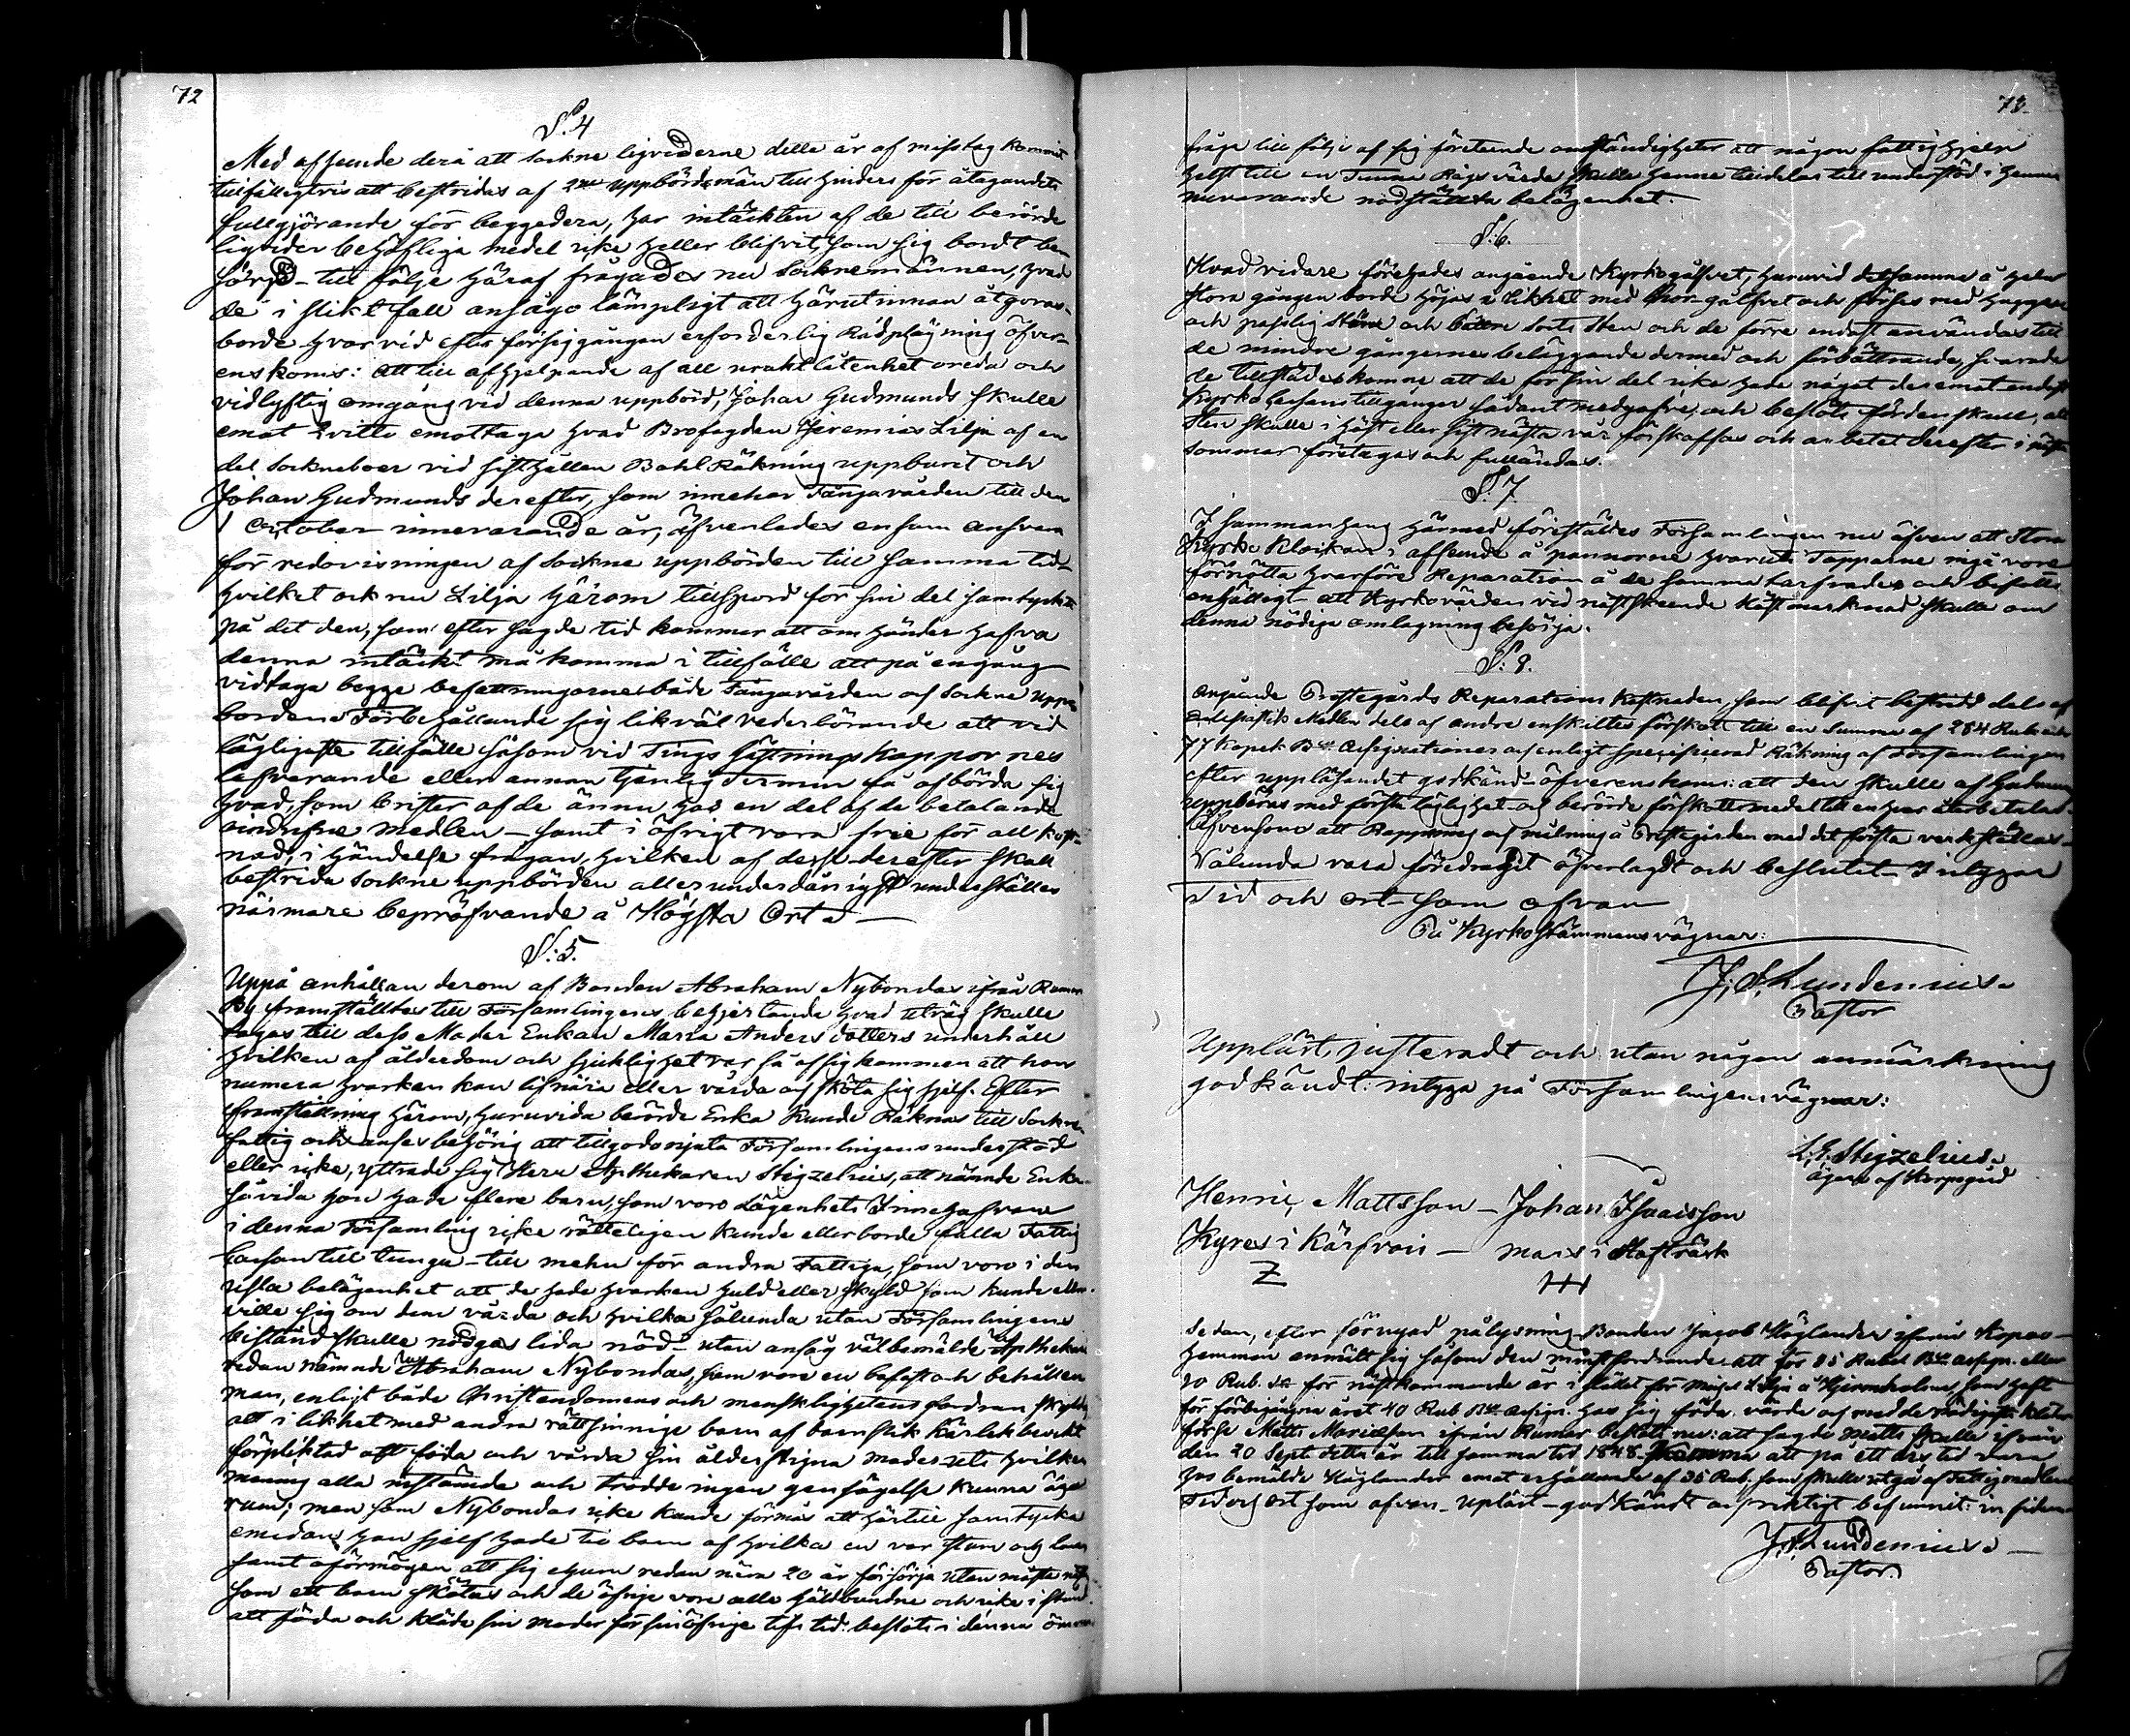 72
§. 4
Med afseende derå att sockne liqviderne detta år af misstag kommit
tillfälligtvis att bestridas af 2ne uppbördsmän till hinders för åtagandets
fullgjörande för beggedera, har intäckten af de till berörde
liqvider behöfliga medel icke heller blifvit, som sig bordt be-
hörd - till följe häraf frågades nu Socknemännen, hvad
de i slikt fall ansågo lämpligt att härutinnan åtgöras
borde hvarvid efter försiggången erforderlig Rådplägning öfver-
enskoms: att till afhjelpande af all uraktlåtenhet oreda och
vidlyftig omgång vid denna uppbörd, Johan Gudmunds skulle
emot qvitto emottaga hvad Brofogden Jeremias Lilja af en
del sockneboer vid sisthållen Bohl Räkning uppburit och
Johan Gudmunds derefter, som innehar Tångavården till den
1 October innevarande år, äfvenledes ensam ansvara
för redovisningen af sockne uppbörden till samma tid
hvilket ock nu Lilja härom tillspord för sin del samtyckte
på det den, som efter sagde tid kommer att om händer hafva
denna intäckt må komma i tillfälle att på engång
vidtaga begge befattningarne både Tångavården och sockne upp-
börden Förbehållande sig likväl vederbörande att vid
lägligaste tillfälle såsom vid Tings hållnings kappornes
lefverande eller annan tjenlig Termin få afbörda sig
hvad, som brister af de ännu hos en del af de betalande
oindrifne medlen - samt i öfrigt vara frie för all kost-
nad, i händelse frågan, hvilken af desse derefter skall
bestrida sockne uppbörden allerunderdånigst underställes
närmare bepröfvande å Högsta Ort.
§. 5.
Uppå anhållan derom af Bonden Abraham Nybondas ifrån Rumar
By framställdes till Församlingens behjertande hvad utväg skulle
tagas till dess Moder Enkan Maria Anders dotters underhåll
hvilken af ålderdom och sjuklighet var så afsigkommen att hon
numera hvarken kan lifnära eller vårda och sköta sig sjelf. Efter
framställning härom, huruvida berörde Enka kunde räknas till Sockne
fattig och anses behörig att tillgodonjuta Församlingens understöd
eller icke, yttrade sig Herr Apthekaren Stigzelius, att nämnde Enka
såvida hon hade flere barn, som voro Lägenhets Innehafvare
i denna Församling icke rätteligen kunde eller borde falla Fattig
Cassan till tunga - till mehn för andra Fattiga, som voro i den
usla belägenhet att de hade hvarken huld eller skyld som kunde eller
ville sig om dem vårda och hvilka sålunda utan Församlingens
bistånd skulle nödgas lida nöd - utan ansåg välbemälde Apthekare
redan nämnde Abraham Nybondas, som vore en besuten och behållen
man, enligt både Christendomens och mensklighetens fordran skyldig
att i likhet med andra rättsinnige barn af barnslik kärlek bevekt
förpliktad att föda och vårda sin ålderstigna moder sitt hvilken
mening alla instämde och trodde ingen gensägelse kunna äga
rum; men som Nybondas icke kunde förmås att härtill samtycka
emedan han sjelf hade tio barn af hvilka en var stum och lam
samt oförmögen att sig ehuru redan nära 20 år försörja utan måste
som ett barn skötas och de öfrige vore alla skuldbundne och icke i stånd
att föda och kläda sin moder för sin öfrige lifs tid: beslöts i denna
73
fråge till följe af sig företeende omständigheter att någon fattighjelp
helst till en Tunna Rågs värde skulle henne tilldelas till understöd i hennes
nuvarande nödställda belägenhet.
§. 6.
Hvad vidare förehades angående Kyrkogolfvet, huruvid detsamma å hela
stora gången borde höjas i likhet med Chor-golfvet och förses med huggen
och passlig sten och bättre sorts sten och de förre endast användas till
de mindre gångernes beläggande dermed och förbättrande, svarade
de tillstädeskomne att de för sin del icke hade något deremot endast
Kyrko Cassans tillgångar sådant medgåfve, och beslöts fördenskull, att
sten skulle i höst eller sist nästa vår förskaffas och arbetet derefter i nästa
sommar företagas och fulländas.
§. 7.
I sammanhang härmed föreställdes Församlingen nu äfven att Stora
Kyrko Klockan i afseende å pannorne hvaruti Tapparne ingå vore
förnötta hvarföre Reparation å de samma tarfvades och bifölls
enhälligt att Kyrkovärden vid nästskeende Höst marknad skulle om
denna nödiga omlagning besörja.
§. 8.
Angående Prostegårds Reparations Kostnaden, som blifvit bestridd dels af
Ecclesiastik Medlen dels af andre enskiltes förskott till en Summa af 284 Rubel
77 Kopek Bco Assignationer och enligt specificerad Räkning af Församlingen
efter uppläsandet godkänd - öfverenskoms: att den skulle af Gudmunds
uppbäras med första läglighet och berörde förskottsmedel till enhvar återbetalas.
Äfvensom att Rappning och målning å Prostegården med det första verkställas.
Sålunda vara föredragit öfverlagdt och beslutit Intygar
Tid och ort som ofvan
På Kyrkostämmans vägnar:
J. F. Lundenius
Pastor
Uppläst, justeradt och utan någon anmärkning
godkändt: intyga på Församlingens vägnar:
L. E. Stigzelius
ägare af Korpogård
Henric Mattsson - Johan Isacsson
Kyres i Kärfvois - Mars i Hofträsk
Sedan, efter förnyad pålysning Bonden Jacob Höglander ifrån Korpo-
hemman anmält sig såsom den minst fordrande att för 35 Rubel Bco assign. eller
10 Rub. Sr för nästkommande år i stället för Mågs Lilja å Hjermholm, som haft
för förbegångne året 40 Rub Bco Assign. hos sig föda vårda och med de nödigaste kläder
förse Matts Mariesson ifrån Rumar beslöts nu: att sagde Matts skulle ifrån
den 20 Sept. detta år till samma tid 1848 komma att på ett års tid vara
hos bemälde Höglander emot erhållande af 35 Rub, som skulle utgå af Fattigmedlen
Tid och ort som ofvan - Upläst - godkändt och riktigt befunnit: in fidem
J. F. Lundenius
Pastor.